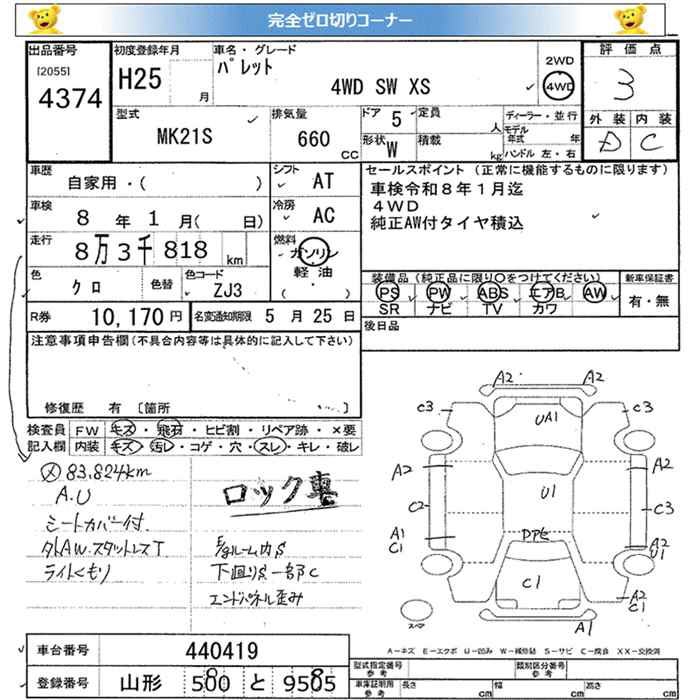 完全ゼロ切りコーナー
出品番号
[2055]
4374
初度登録年月
H25 月
車名・グレード
パレット
4WD SW XS
2WD
4WD
評価点
3
外装 内装
D C
型式
MK21S
排気量
660 cc
ドア 5
形状 W
定員 人
積載 kg
ディーラー・並行
モデル年式 年
ハンドル 左・右
車歴
自家用・( )
シフト
AT
車検
8 年 1 月( 日)
冷房
AC
走行
8万3千818 km
燃料
ガソリン
軽油
( ・ )
色
クロ
色替
色コード
ZJ3
R券 10,170円
名変通知期限 5月25日
セールスポイント(正常に機能するものに限ります)
車検令和8年1月迄
4WD
純正AW付タイヤ積込
装備品(純正品に限り○をつけてください)
PS PW ABS エアB AW
SR ナビ TV カワ
新車保証書
有・無
後日品
注意事項申告欄(不具合内容等は具体的に記入して下さい)
修復歴 有 [箇所
検査員 FW キズ・飛石・ヒビ割・リペア跡・×要
記入欄 内装 キズ・汚レ・コゲ・穴・スレ・キレ・破レ
メ 83,824km
A.U
シートカバー付
タトAW.スタットレスT
ライトくもり
ロック車
E/gルーム内S
下廻りS一部C
エンドパネル歪み
A2 A2
C3 UA1 C3
A2 A2
C2 U1 C3
A1 C1 A2 U1
C1
A2 C1
スペア
A1
A-キズ E-エクボ U-凹み W-補修跡 S-サビ C-腐食 XX-交換済
車台番号 440419
登録番号 山形 580 と 9585
型式指定番号
参考
類別区分番号
参考
車庫証明用
参考
長さ cm 幅 cm 高さ cm